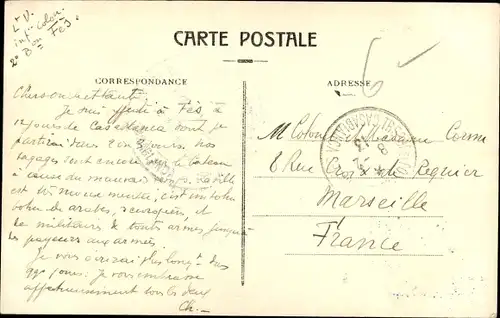 Lt V.
inf. colon.
2e Bon
Fès
CARTE POSTALE
CORRESPONDANCE
ADRESSE
Cher oncle et tante
Je suis affecté à Fès à
jours de Casablanca dont je
partirai dans 2 ou 3 jours. Nos
bagages sont encore sur le bateau
à cause du mauvais temps. La ville
est
de arabes, européens, et
de militaires de toutes armes jusqu'
payeurs aux armées.
Je vous écrirai plus longt dans
qqes jours. Je vous embrasse
affectueusement tous les deux
Ch.
6
M. Colonel Madame Corme
8 Rue Croix de Reguier
Marseille
France